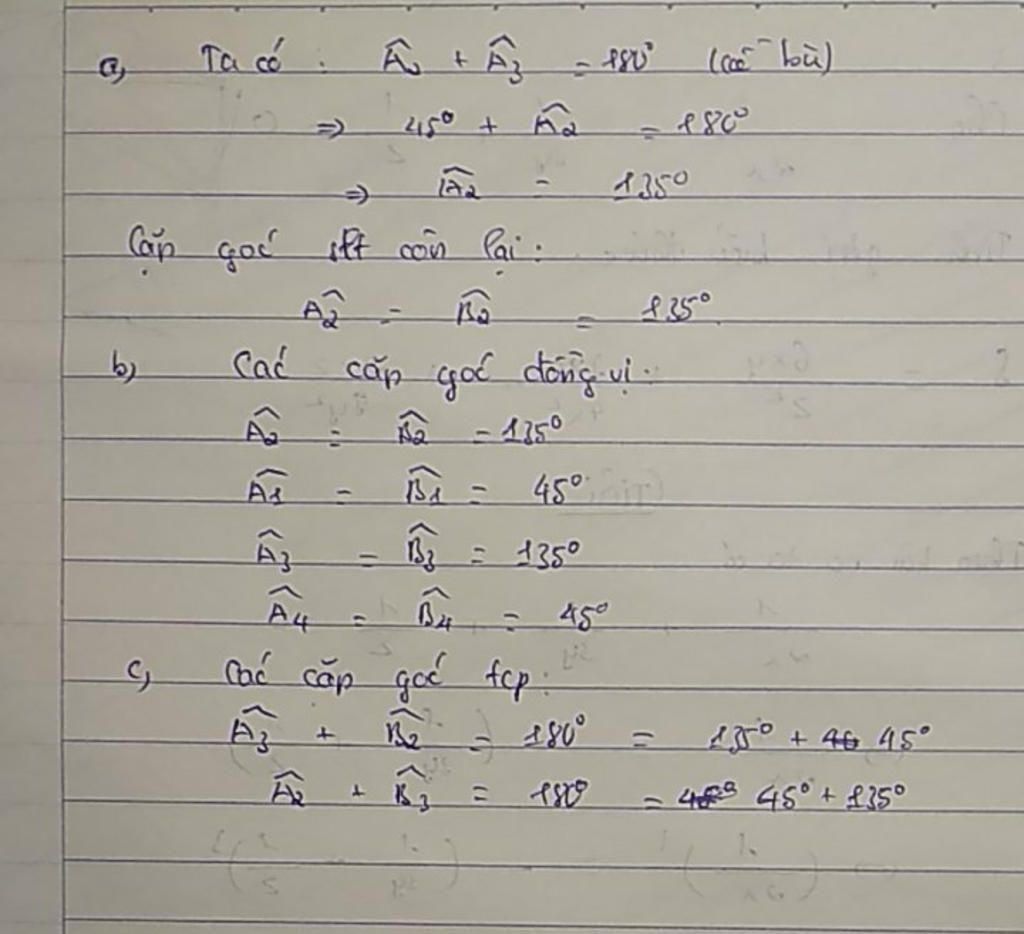 a, Ta có : Â₁ + Â₃ = 180° (kề bù)
⇒ 45° + Â₂ = 180°
⇒ Â₂ = 135°
Cặp góc slt còn lại :
Â₂ = B̂₂ = 135°
b, Các cặp góc đồng vị :
Â₂ = B̂₂ = 135°
Â₁ = B̂₁ = 45°
Â₃ = B̂₃ = 135°
Â₄ = B̂₄ = 45°
c, Các cặp góc tcp :
Â₃ + B̂₂ = 180° = 135° + 45°
Â₂ + B̂₃ = 180° = 45° + 135°